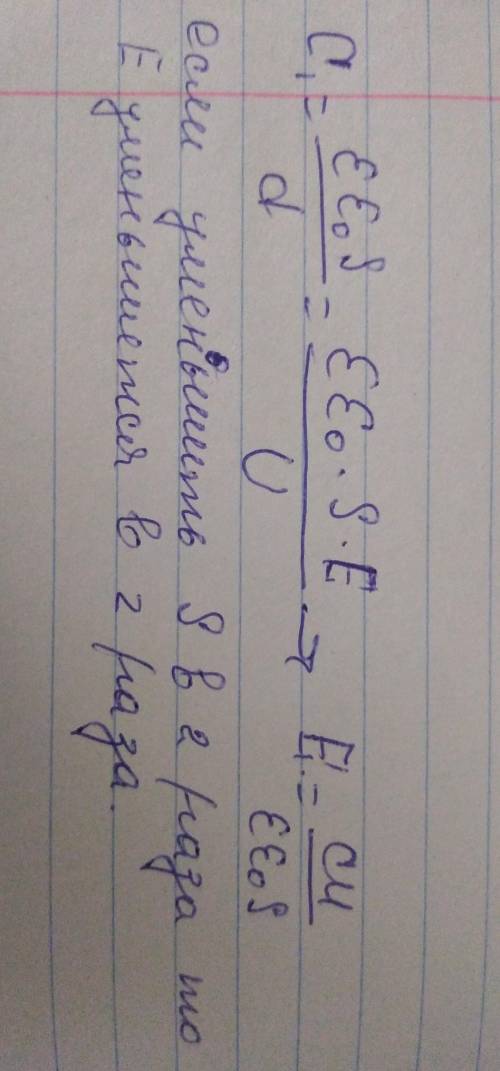 C₁ = εε₀S / d = εε₀·S·E / U → E₁ = CU / εε₀S
если уменьшить S в 2 раза то
E уменьшится в 2 раза.